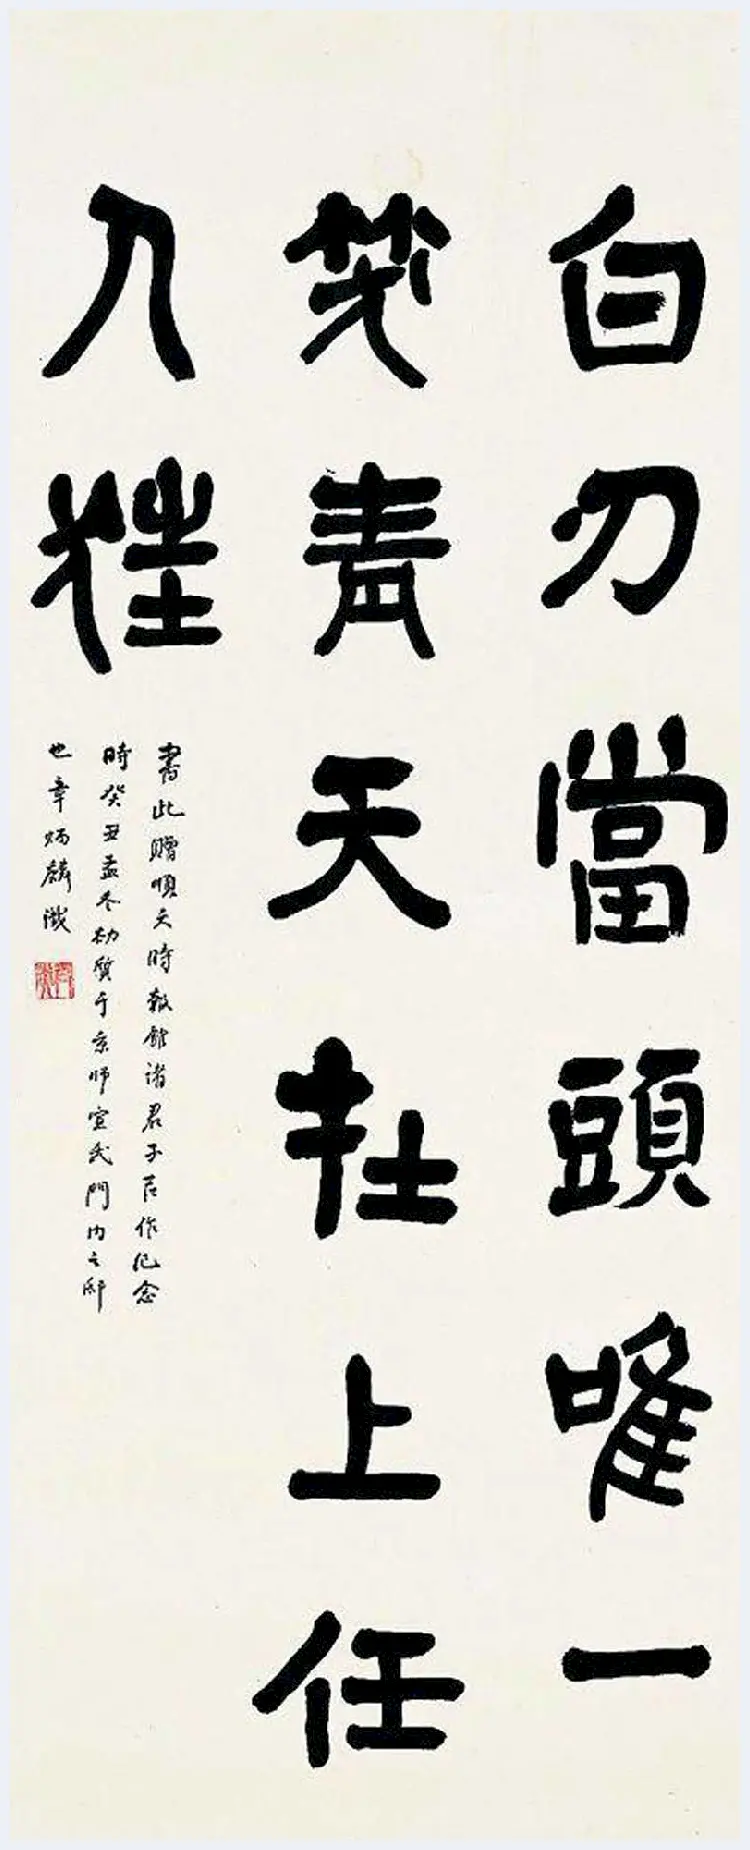 白刃當頭唯一
笑青天在上任
人狂
書此贈順天時報館諸君子以作紀念
時癸丑孟冬劫質于京師宣武門內之邸
也章炳麟識